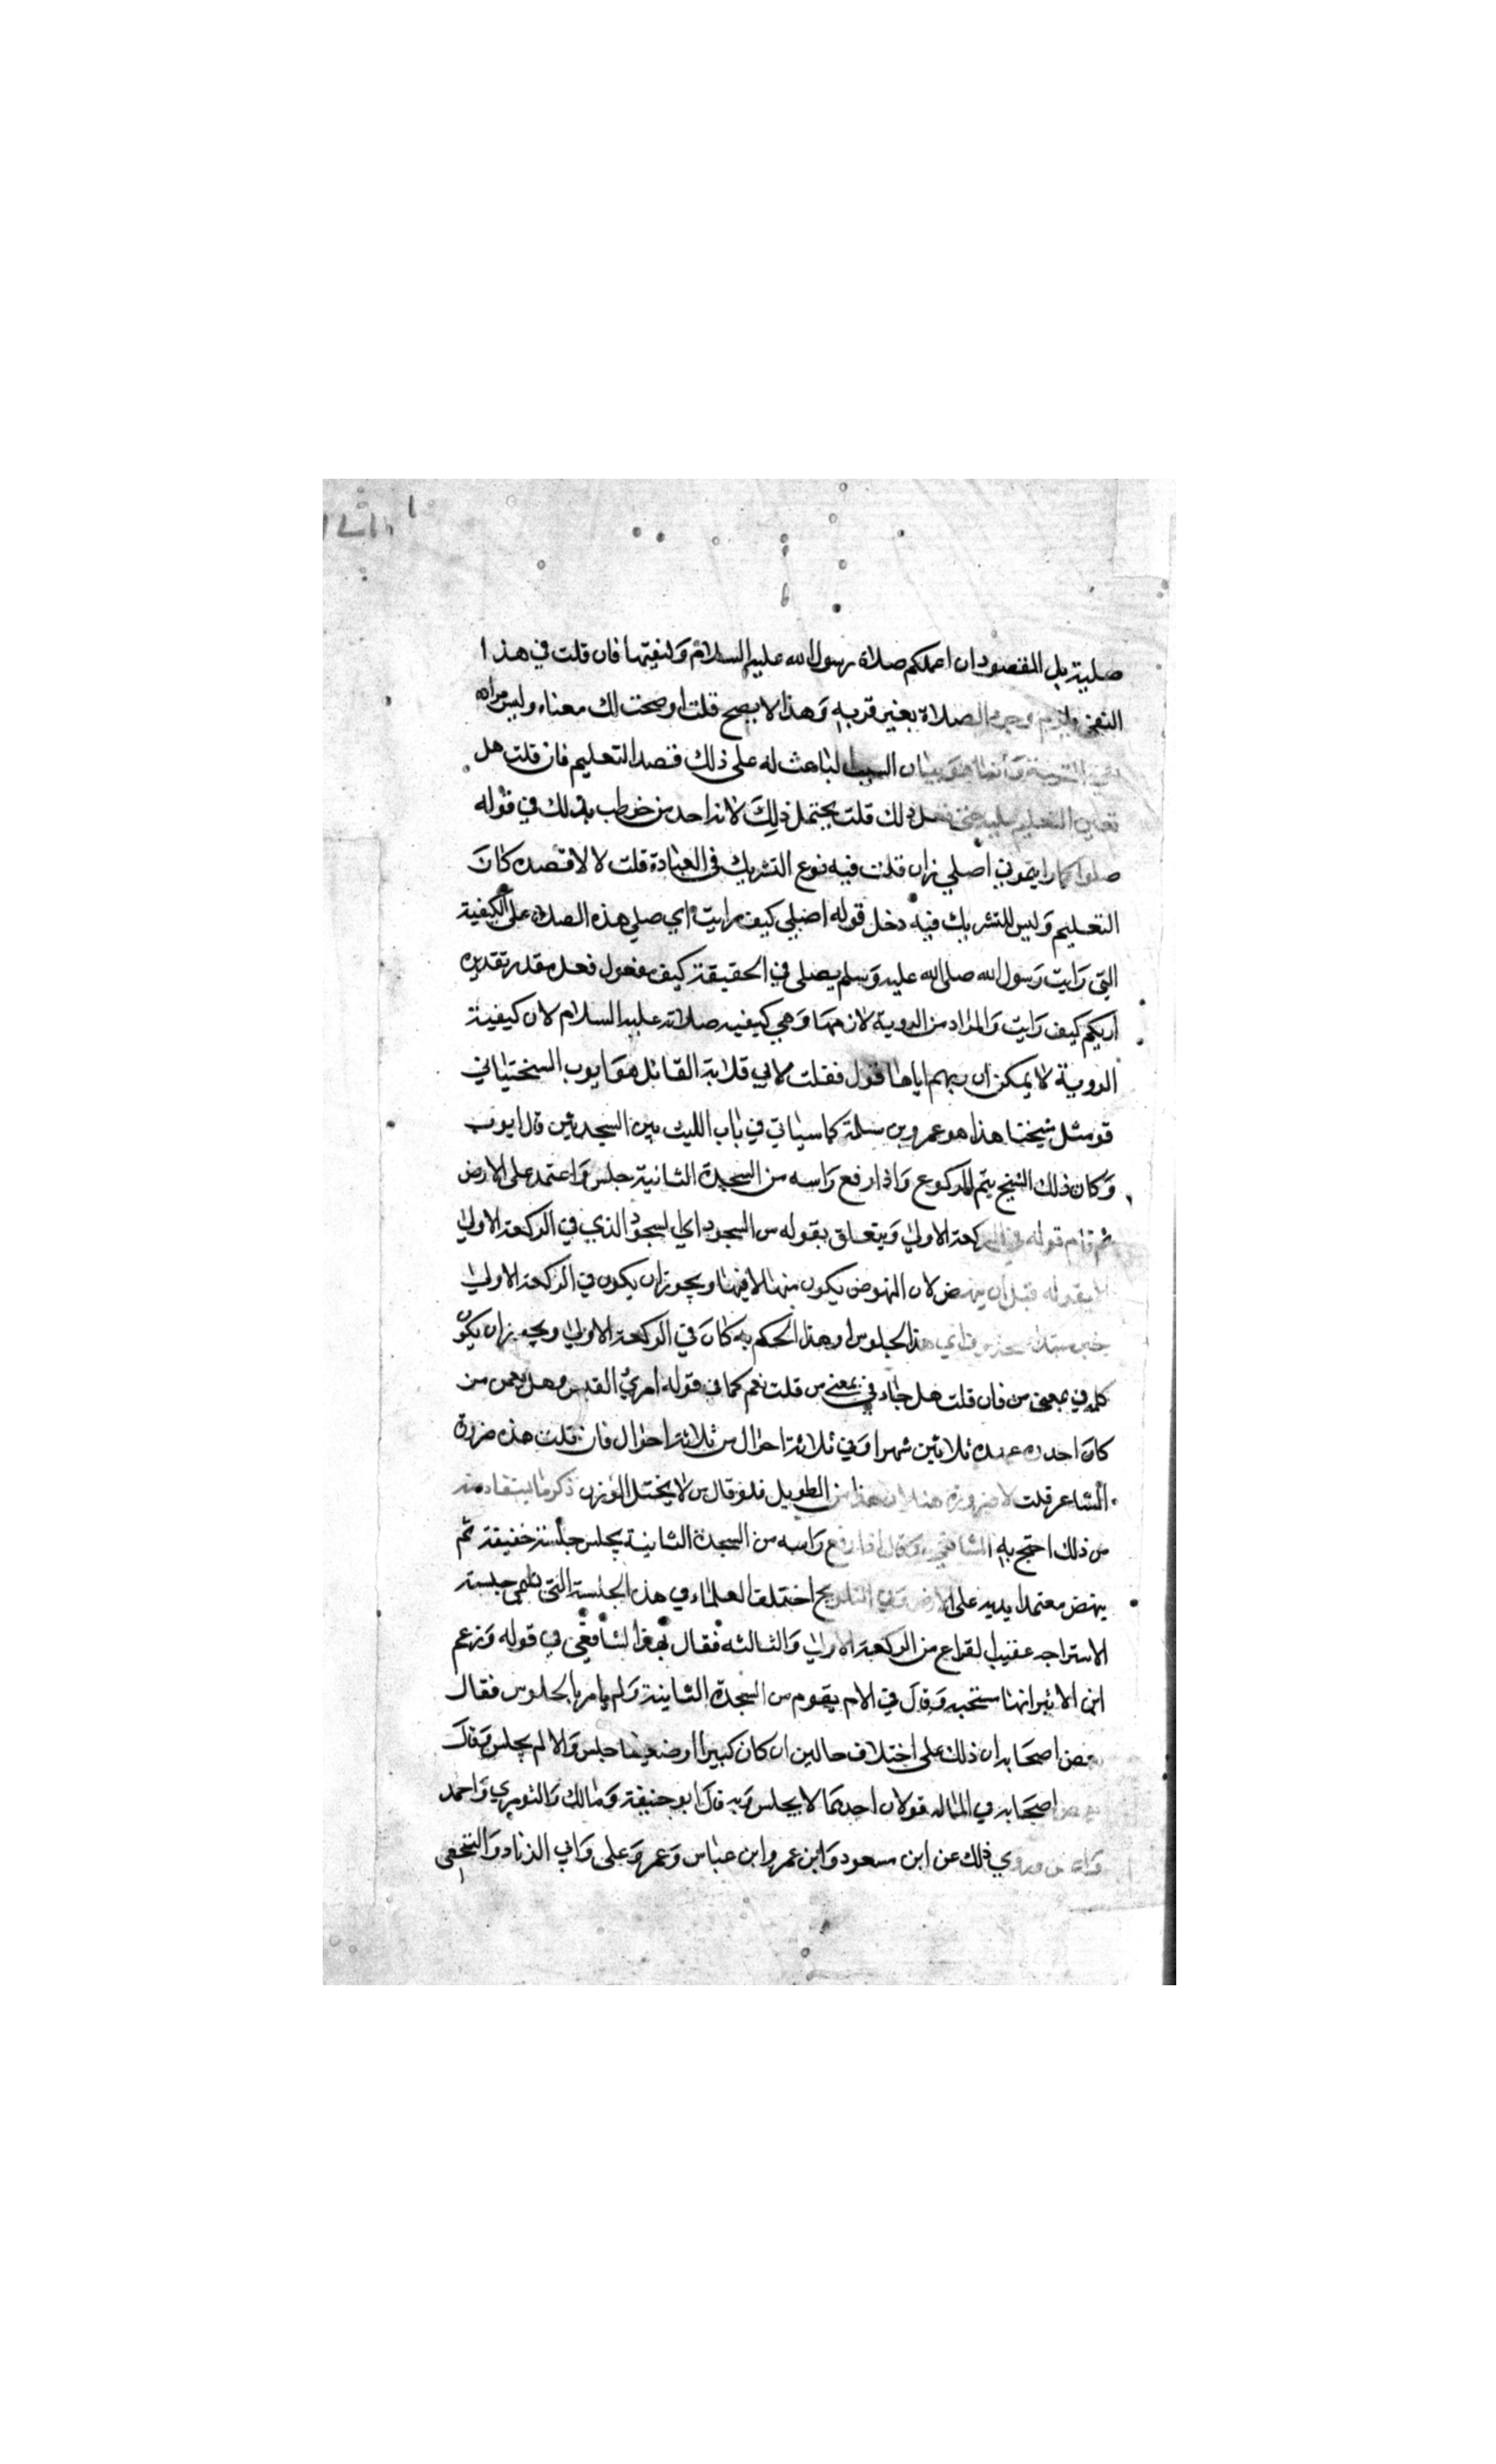 صلية بل المقصود ان اعلمكم صلاة رسول الله عليه السلام وكيفيتها فان قلت في هذا
النفي يلزم وجود الصلاة بغير قربه وهذا لا يصح قلت اوضحت لك معناه وليس مراده
نفي القربة وانما هو بيان السبب الباعث له على ذلك قصد التعليم فان قلت هل
تعين التعليم عليه حتى فعل ذلك قلت يحتمل ذلك لانه احد من خوطب بذلك في قوله
صلوا كما رايتموني اصلي فان قلت فيه نوع التشريك في العبادة قلت لا لا قصده كان
التعليم وليس للتشريك فيه دخل قوله اصلي كيف رايت اي صلي هذه الصلاة على الكيفية
التي رايت رسول الله صلى الله عليه وسلم يصلي في الحقيقة كيف مفعول فعل مقدر تقديره
اريكم كيف رايت والمراد من الروية لازمها وهي كيفيه صلاته عليه السلام لان كيفية
الروية لا يمكن ان يريهم اياها قوله فقلت لابي قلابة القائل هو ايوب السختياني
قوله مثل شيخنا هذا هو عمرو بن سلمة كما سياتي في باب اللبث بين السجدتين قال ايوب
وكان ذلك الشيخ يتم الركوع واذا رفع راسه من السجدة الثانية جلس واعتمد على الارض
ثم قام قوله في الركعة الاولى ويتعلق بقوله من السجود اي السجود الذي في الركعة الاولى
لا بقوله قبل ان ينهض لان النهوض يكون منها لا فيها ويجوز ان يكون في الركعة الاولى
خبر مبتدا محذوف اي هذا الجلوس او هذا الحكم به كان في الركعة الاولى ويجوز ان يكون
كلمه في بمعنى من فان قلت هل جاء في بمعنى من قلت نعم كما في قوله امرئ القيس وهل يعمن من
كان احدث عهده ثلاثين شهرا وفي ثلاثة احوال من ثلاثة احوال فان قلت هذه ضرورة
الشاعر قلت لا ضرورة هنا لان هذا من الطويل فلو قال من لا يختل الوزن ذكر ما يستفاد منه
من ذلك احتج به الشافعي وقال اذا رفع راسه من السجدة الثانية يجلس جلسة خفيفة ثم
ينهض معتمدا يديه على الارض وفي التلويح اختلف العلماء في هذه الجلسة التي تسمى جلسة
الاستراحه عقيب الفراغ من الركعة الاولى والثالثه فقال بها الشافعي في قوله وزعم
ابن الاثير انها مستحبه وقال في الام يقوم من السجدة الثانية ولم يامر بالجلوس فقال
بعض اصحابه ان ذلك على اختلاف حالين ان كان كبيرا او ضعيفا جلس والا لم يجلس وقال
بعض اصحابه في المساله قولان احدهما لا يجلس وبه قال ابو حنيفة ومالك والثوري واحمد
واسحاق وروي ذلك عن ابن مسعود وابن عمر وابن عباس وعمر وعلي وابي الزناد والنخعي